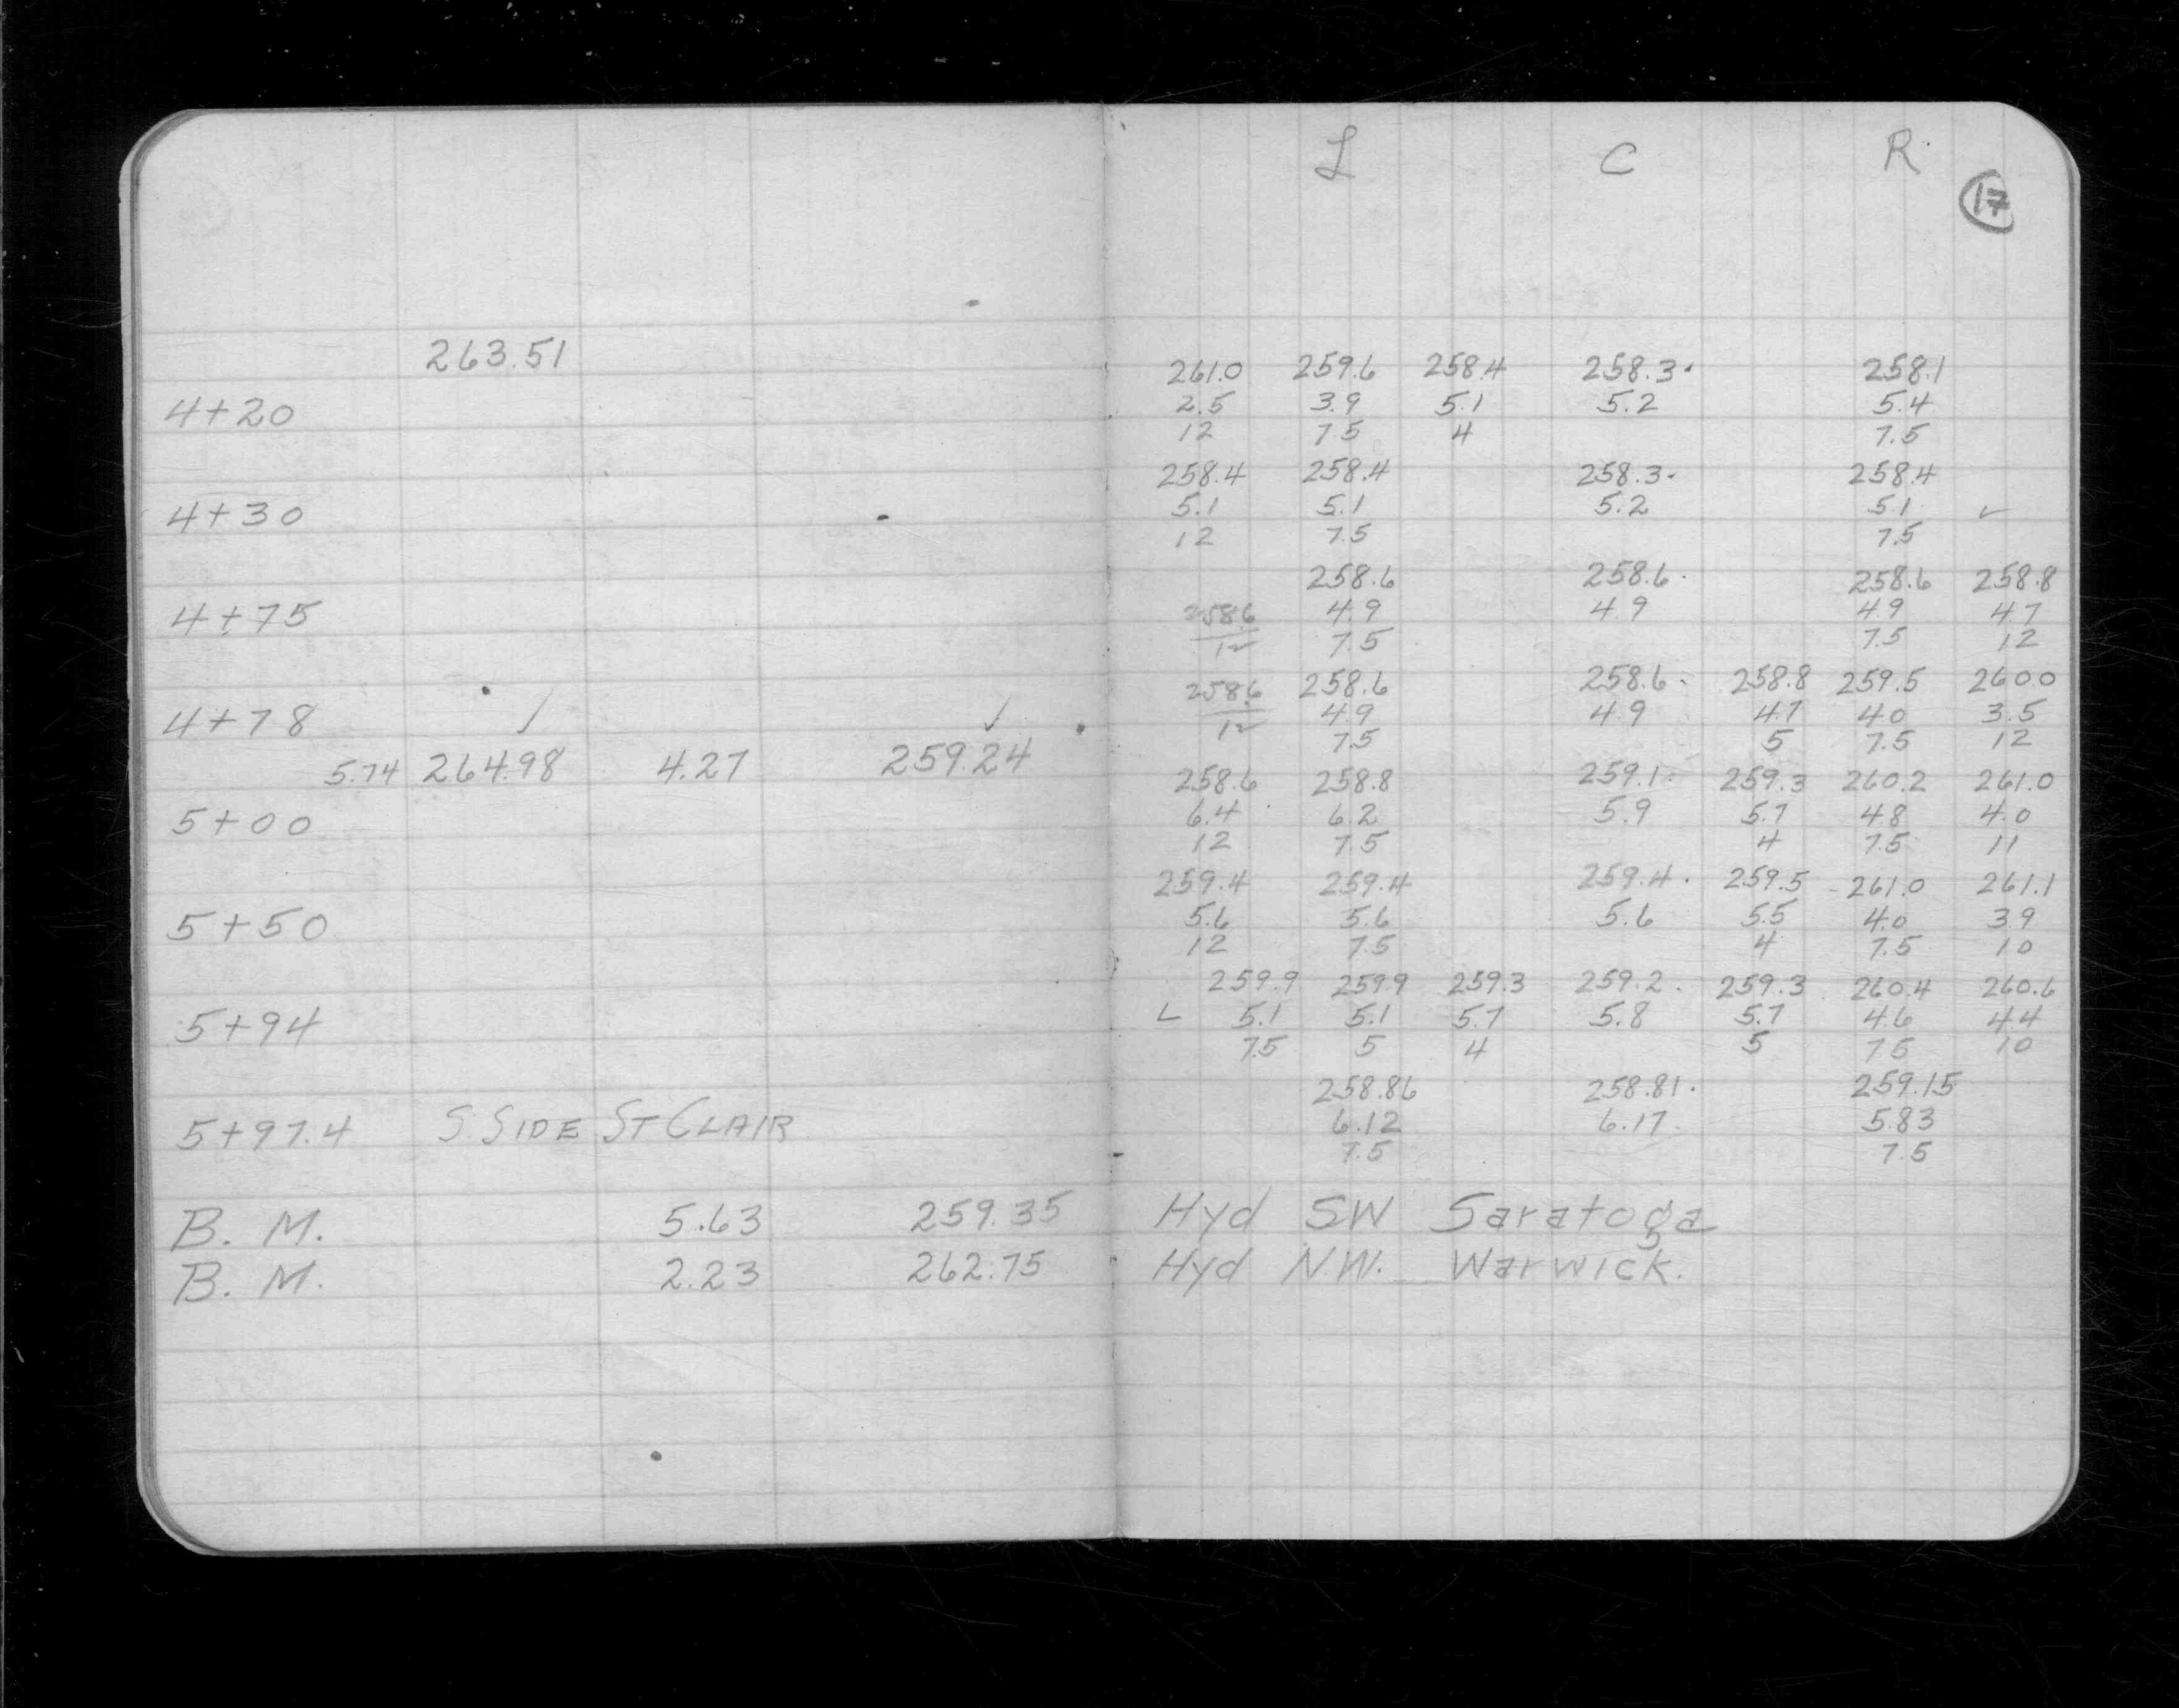 L C R
17
263.51
261.0 259.6 258.4 258.3 258.1
4+20 2.5 3.9 5.1 5.2 5.4
12 7.5 4 7.5
258.4 258.4 258.3 258.4
4+30 5.1 5.1 5.2 5.1 ✓
12 7.5 7.5
258.6 258.6 258.6 258.8
4+75 258.6 4.9 4.9 4.9 4.7
12 7.5 7.5 12
258.6 258.6 258.6 258.8 259.5 260.0
4+78 ✓ ✓ 12 4.9 4.9 4.7 4.0 3.5
7.5 5 7.5 12
5.74 264.98 4.27 259.24 258.6 258.8 259.1 259.3 260.2 261.0
5+00 6.4 6.2 5.9 5.7 4.8 4.0
12 7.5 4 7.5 11
259.4 259.4 259.4 259.5 261.0 261.1
5+50 5.6 5.6 5.6 5.5 4.0 3.9
12 7.5 4 7.5 10
259.9 259.9 259.3 259.2 259.3 260.4 260.6
5+94 ✓ 5.1 5.1 5.7 5.8 5.7 4.6 4.4
7.5 5 4 5 7.5 10
258.86 258.81 259.15
5+97.4 S. SIDE ST CLAIR 6.12 6.17 5.83
7.5 7.5
B. M. 5.63 259.35 Hyd SW Saratoga
B. M. 2.23 262.75 Hyd N.W. Warwick.